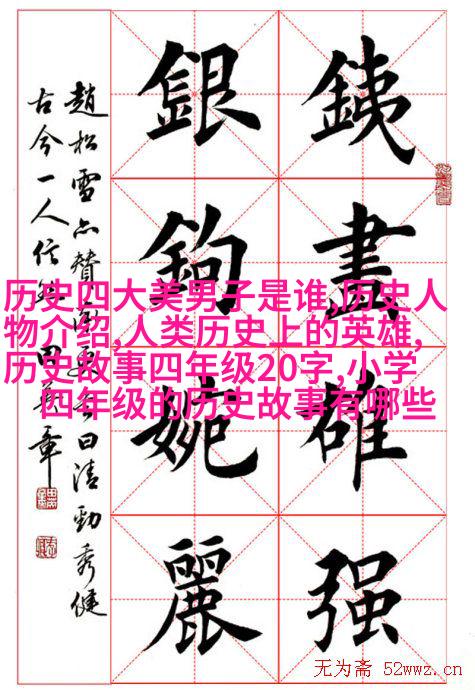 銕畫雄强
銀鉤婉麗
趙松雪亦贊更曰清勁秀健
古今一人信 田英章
历史四大美男子是谁,历史人
物介绍,人类历史上的英雄,
历史故事四年级20字,小学
四年级的历史故事有哪些
无为斋 52wwz.cn